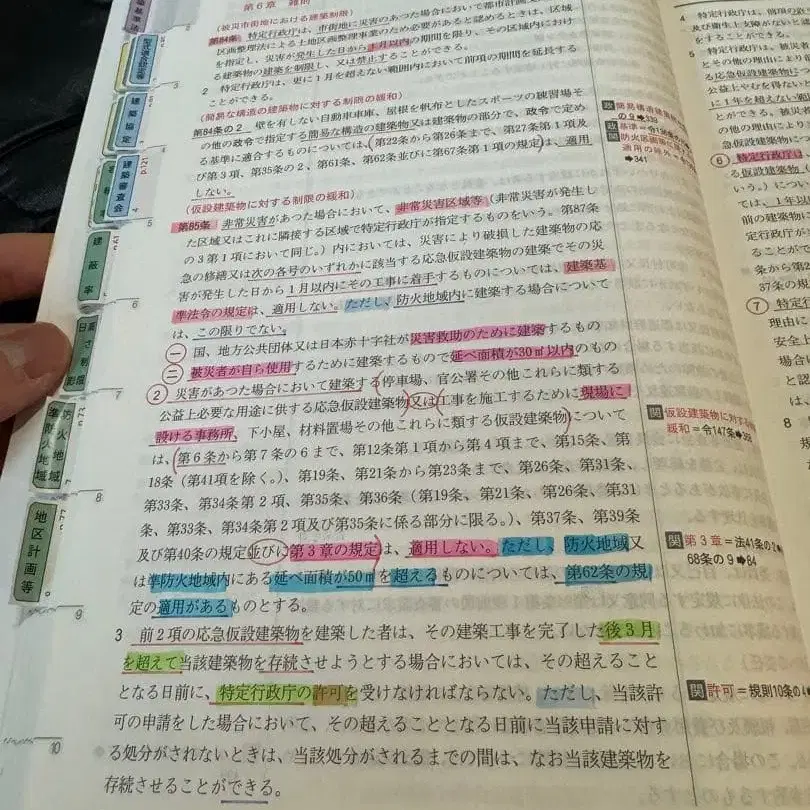 第6章 雑則
(被災市街地における建築制限)
第84条 特定行政庁は、市街地に災害のあつた場合において都市計画
区画整理法による土地区画整理事業のため必要があると認めるときは、区域
を指定し、災害が発生した日から1月以内の期間を限り、その区域内におけ
る建築物の建築を制限し、又は禁止することができる。
2 特定行政庁は、更に1月を超えない範囲内において前項の期間を延長する
ことができる。
(簡易な構造の建築物に対する制限の緩和)
第84条の2 壁を有しない自動車車庫、屋根を帆布としたスポーツの練習場そ
の他の政令で指定する簡易な構造の建築物又は建築物の部分で、政令で定め
る基準に適合するものについては、(第22条から第26条まで、第27条第1項及
び第3項、第35条の2、第61条、第62条並びに第67条第1項の規定)は、適用
しない。
(仮設建築物に対する制限の緩和)
第85条 非常災害があつた場合において、非常災害区域等(非常災害が発生し
た区域又はこれに隣接する区域で特定行政庁が指定するものをいう。第87条
の3第1項において同じ。)内においては、災害により破損した建築物の応
急の修繕又は次の各号のいずれかに該当する応急仮設建築物の建築でその災
害が発生した日から1月以内にその工事に着手するものについては、建築基
準法令の規定は、適用しない。ただし、防火地域内に建築する場合について
は、この限りでない。
一 国、地方公共団体又は日本赤十字社が災害救助のために建築するもの
二 被災者が自ら使用するために建築するもので延べ面積が30㎡以内のもの
2 災害があつた場合において建築する停車場、官公署その他これらに類する
公益上必要な用途に供する応急仮設建築物又は工事を施工するために現場に
設ける事務所、下小屋、材料置場その他これらに類する仮設建築物について
は、(第6条から第7条の6まで、第12条第1項から第4項まで、第15条、第
18条(第41項を除く。)、第19条、第21条から第23条まで、第26条、第31条、
第33条、第34条第2項、第35条、第36条(第19条、第21条、第26条、第31
条、第33条、第34条第2項及び第35条に係る部分に限る。)、第37条、第39条
及び第40条の規定並びに第3章の規定)は、適用しない。ただし、防火地域又
は準防火地域内にある延べ面積が50㎡を超えるものについては、第62条の規
定の適用があるものとする。
3 前2項の応急仮設建築物を建築した者は、その建築工事を完了した後3月
を超えて当該建築物を存続させようとする場合においては、その超えること
となる日前に、特定行政庁の許可を受けなければならない。ただし、当該許
可の申請をした場合において、その超えることとなる日前に当該申請に対す
る処分がされないときは、当該処分がされるまでの間は、なお当該建築物を
存続させることができる。
政 簡易構造建築物
の9➡339
政 基準=令136条の
関 防火区画等に関
適用の除外=令
➡341
関 仮設建築物に対する
緩和=令147条➡
関 第3章=法41条の2➡
68条の9➡84
関 許可=規則10条の4
建築協定
建築審査会
建蔽率
高さ制限
日影
防火地域
準防火地域
地区計画等
5
6
7
8
9
10
4 特定行政庁は、
及び衛生上支障がない
をすることができる。
5 特定行政庁は、被災者
とその他の理由により
る応急仮設建築物に
公益上やむを得ないと
に1年を超えない範囲
とができる。被災者
の他の理由により
6 特定行政庁は
る仮設建築物
いう。)について
ては、1年以
前の建築物に
定行政庁が
ることがで
条から第2
37条の規
7 特定行
理由に
安全上
る場
と認
8